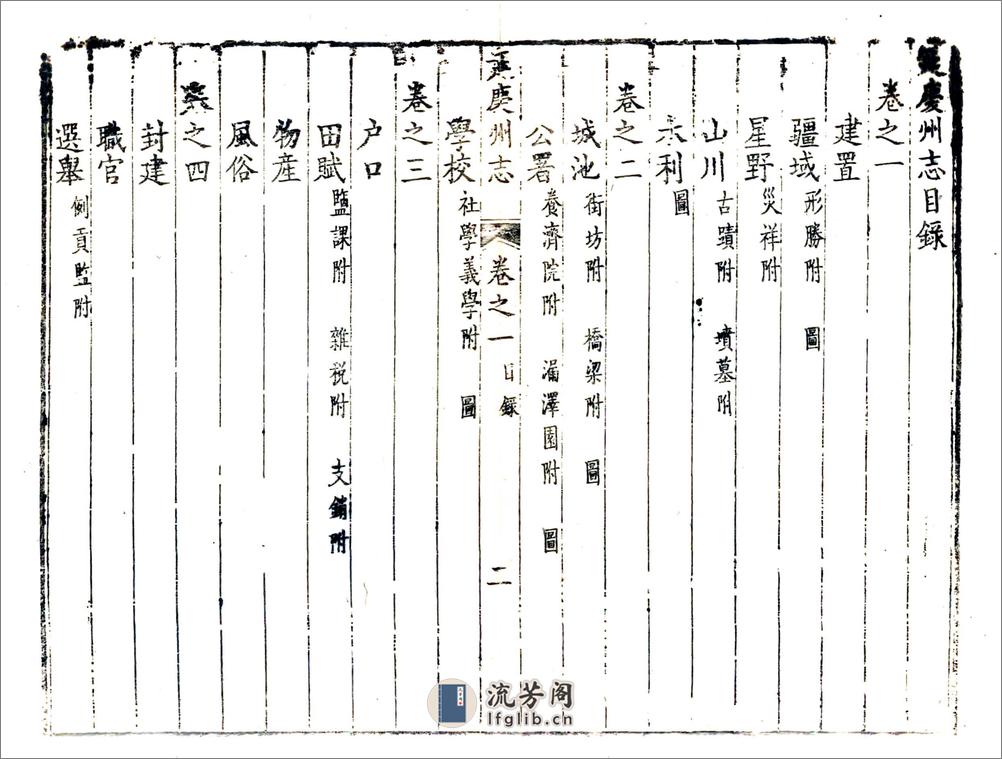 延慶州志目錄
卷之一
建置
疆域 形勝附 圖
星野 災祥附
山川 古蹟附 墳墓附
水利 圖
卷之二
城池 街坊附 橋梁附 圖
公署 養濟院附 漏澤園附 圖
學校 社學義學附 圖
延慶州志 卷之一 目錄 二
卷之三
户口
田賦 鹽課附 雜税附 支銷附
物産
風俗
卷之四
封建
職官
選舉 例貢監附
流芳阁
lfglib.ch